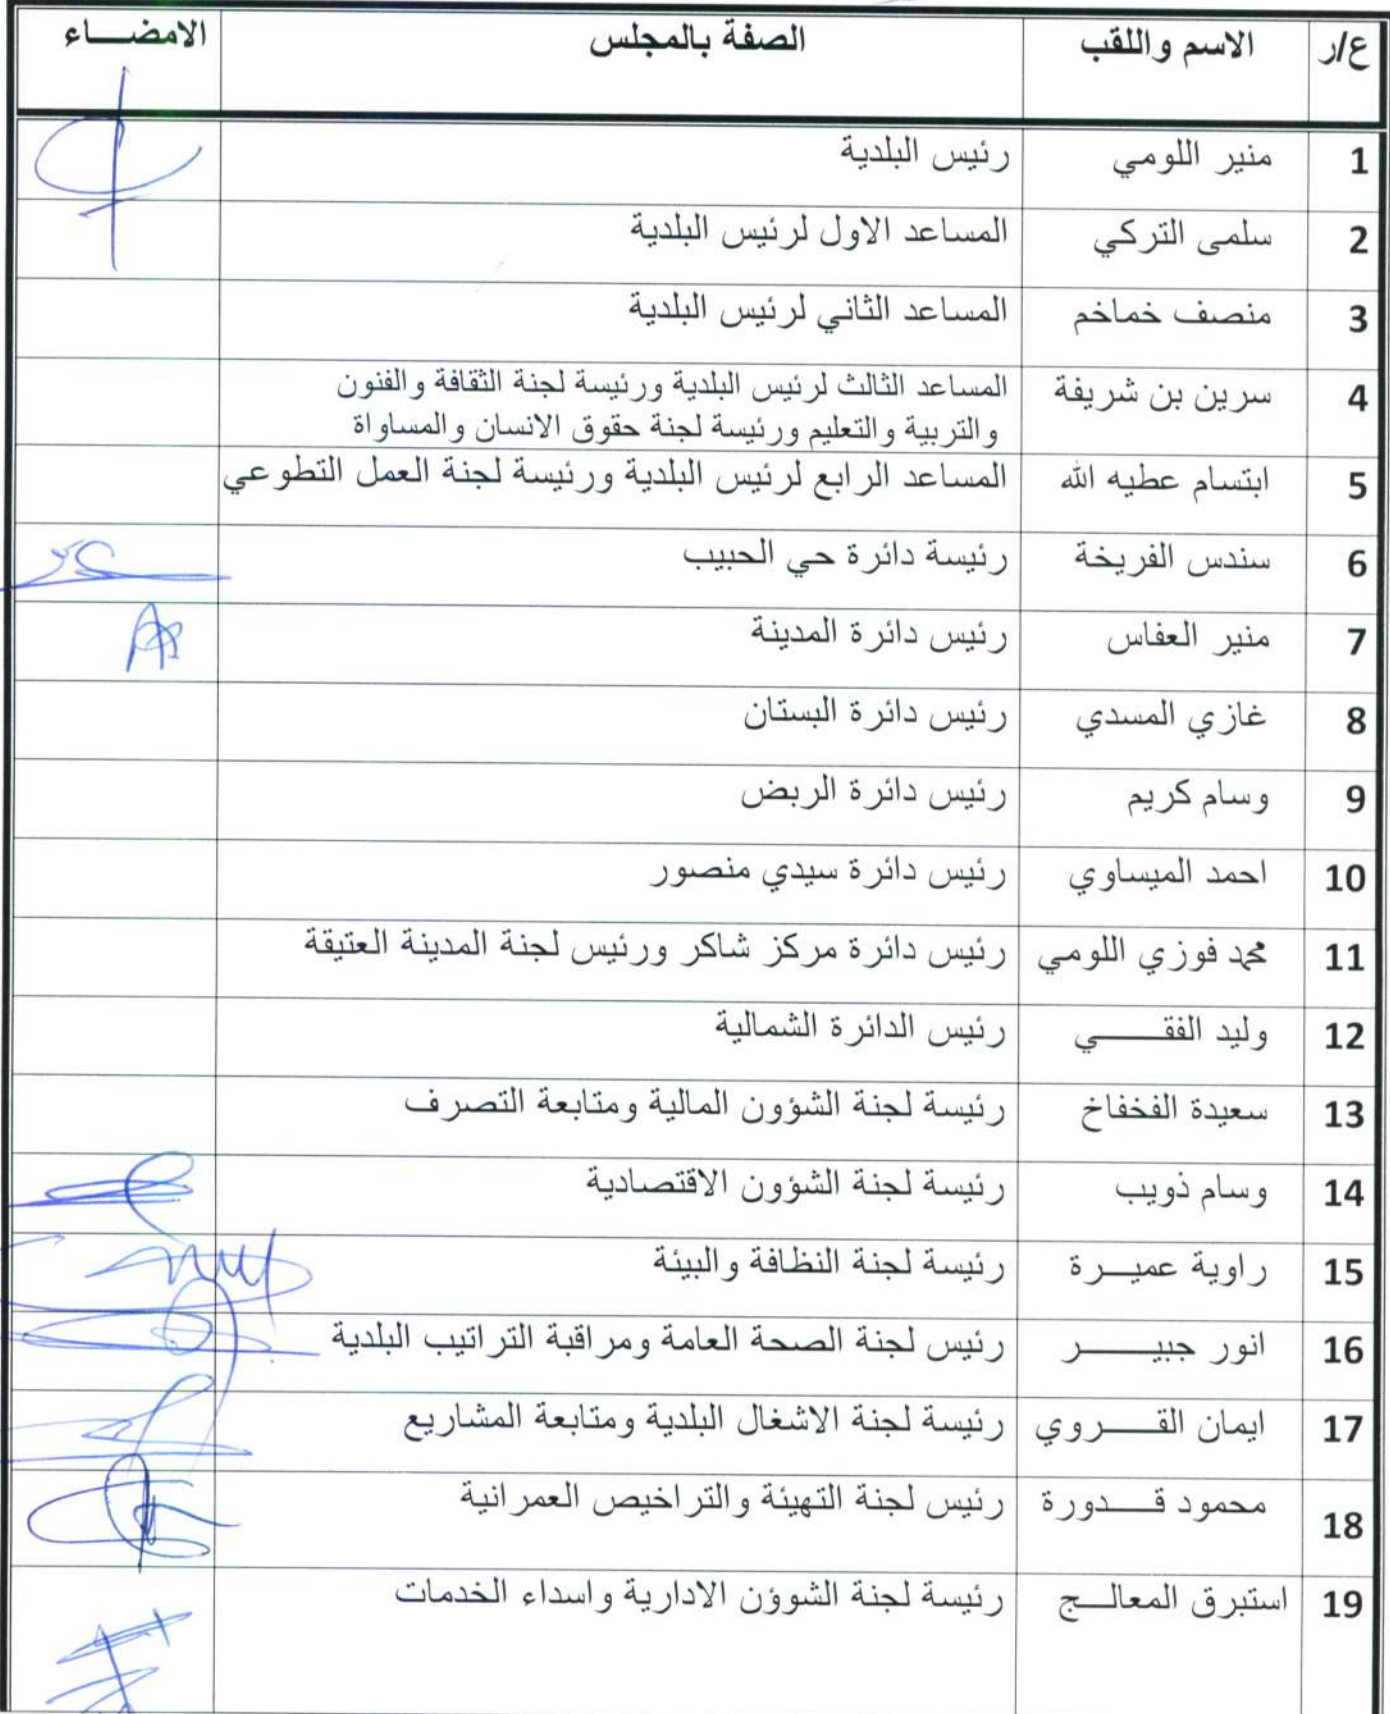 ع/ر الاسم واللقب الصفة بالمجلس الامضـــاء
1 منير اللومي رئيس البلدية
2 سلمى التركي المساعد الاول لرئيس البلدية
3 منصف خماخم المساعد الثاني لرئيس البلدية
4 سرين بن شريفة المساعد الثالث لرئيس البلدية ورئيسة لجنة الثقافة والفنون
والتربية والتعليم ورئيسة لجنة حقوق الانسان والمساواة
5 ابتسام عطيه الله المساعد الرابع لرئيس البلدية ورئيسة لجنة العمل التطوعي
6 سندس الفريخة رئيسة دائرة حي الحبيب
7 منير العفاس رئيس دائرة المدينة
8 غازي المسدي رئيس دائرة البستان
9 وسام كريم رئيس دائرة الربض
10 احمد الميساوي رئيس دائرة سيدي منصور
11 محمد فوزي اللومي رئيس دائرة مركز شاكر ورئيس لجنة المدينة العتيقة
12 وليد الفقـــــي رئيس الدائرة الشمالية
13 سعيدة الفخفاخ رئيسة لجنة الشؤون المالية ومتابعة التصرف
14 وسام ذويب رئيسة لجنة الشؤون الاقتصادية
15 راوية عميـــرة رئيسة لجنة النظافة والبيئة
16 انور جبيـــــر رئيس لجنة الصحة العامة ومراقبة التراتيب البلدية
17 ايمان القـــــروي رئيسة لجنة الاشغال البلدية ومتابعة المشاريع
18 محمود قــــدورة رئيس لجنة التهيئة والتراخيص العمرانية
19 استبرق المعالـــج رئيسة لجنة الشوؤن الادارية واسداء الخدمات